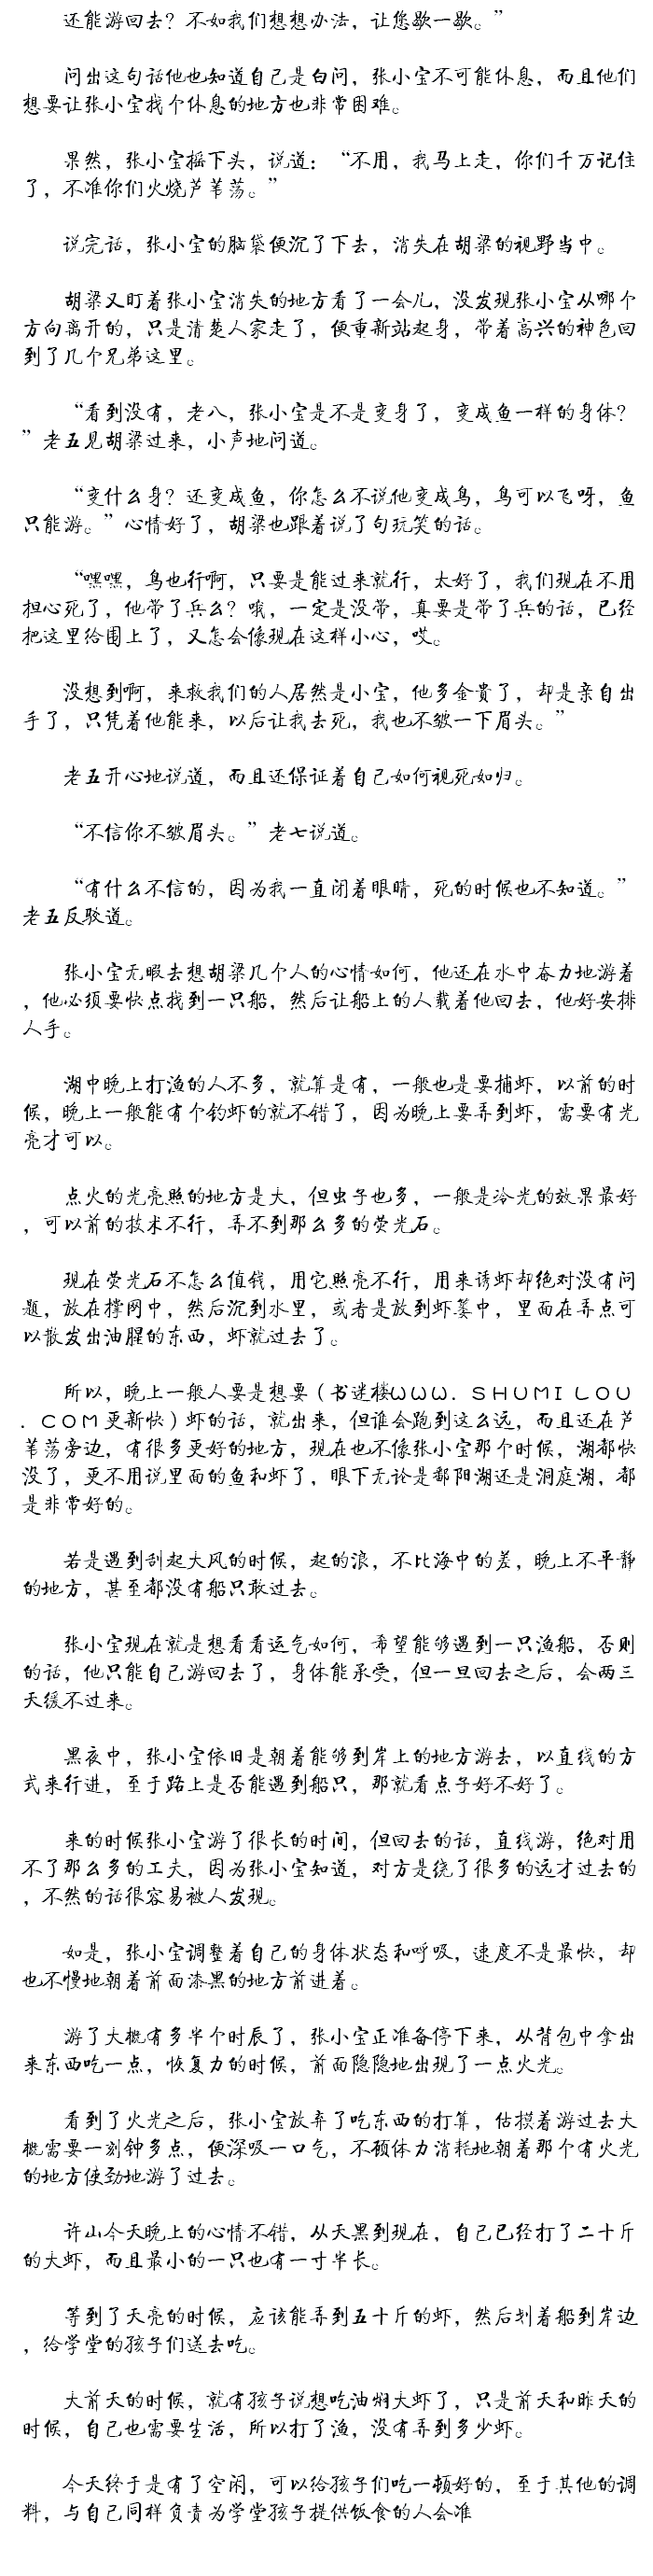 还能游回去？不如我们想想办法，让您歇一歇。”
问出这句话他也知道自己是白问，张小宝不可能休息，而且他们
想要让张小宝找个休息的地方也非常困难。
果然，张小宝摇下头，说道：“不用，我马上走，你们千万记住
了，不准你们火烧芦苇荡。”
说完话，张小宝的脑袋便沉了下去，消失在胡梁的视野当中。
胡梁又盯着张小宝消失的地方看了一会儿，没发现张小宝从哪个
方向离开的，只是清楚人家走了，便重新站起身，带着高兴的神色回
到了几个兄弟这里。
“看到没有，老八，张小宝是不是变身了，变成鱼一样的身体？
”老五见胡梁过来，小声地问道。
“变什么身？还变成鱼，你怎么不说他变成鸟，鸟可以飞呀，鱼
只能游。”心情好了，胡梁也跟着说了句玩笑的话。
“嘿嘿，鸟也行啊，只要是能过来就行，太好了，我们现在不用
担心死了，他带了兵么？哦，一定是没带，真要是带了兵的话，已经
把这里给围上了，又怎会像现在这样小心，哎。
没想到啊，来救我们的人居然是小宝，他多金贵了，却是亲自出
手了，只凭着他能来，以后让我去死，我也不皱一下眉头。”
老五开心地说道，而且还保证着自己如何视死如归。
“不信你不皱眉头。”老七说道。
“有什么不信的，因为我一直闭着眼睛，死的时候也不知道。”
老五反驳道。
张小宝无暇去想胡梁几个人的心情如何，他还在水中奋力地游着
，他必须要快点找到一只船，然后让船上的人载着他回去，他好安排
人手。
湖中晚上打渔的人不多，就算是有，一般也是要捕虾，以前的时
候，晚上一般能有个钓虾的就不错了，因为晚上要弄到虾，需要有光
亮才可以。
点火的光亮照的地方是大，但虫子也多，一般是冷光的效果最好
，可以前的技术不行，弄不到那么多的荧光石。
现在荧光石不怎么值钱，用它照亮不行，用来诱虾却绝对没有问
题，放在撑网中，然后沉到水里，或者是放到虾篓中，里面在弄点可
以散发出油腥的东西，虾就过去了。
所以，晚上一般人要是想要（书迷楼ＷＷＷ．ＳＨＵＭＩＬＯＵ
．ＣＯＭ更新快）虾的话，就出来，但谁会跑到这么远，而且还在芦
苇荡旁边，有很多更好的地方，现在也不像张小宝那个时候，湖都快
没了，更不用说里面的鱼和虾了，眼下无论是鄱阳湖还是洞庭湖，都
是非常好的。
若是遇到刮起大风的时候，起的浪，不比海中的差，晚上不平静
的地方，甚至都没有船只敢过去。
张小宝现在就是想看看运气如何，希望能够遇到一只渔船，否则
的话，他只能自己游回去了，身体能承受，但一旦回去之后，会两三
天缓不过来。
黑夜中，张小宝依旧是朝着能够到岸上的地方游去，以直线的方
式来行进，至于路上是否能遇到船只，那就看点子好不好了。
来的时候张小宝游了很长的时间，但回去的话，直线游，绝对用
不了那么多的工夫，因为张小宝知道，对方是绕了很多的远才过去的
，不然的话很容易被人发现。
如是，张小宝调整着自己的身体状态和呼吸，速度不是最快，却
也不慢地朝着前面漆黑的地方前进着。
游了大概有多半个时辰了，张小宝正准备停下来，从背包中拿出
来东西吃一点，恢复力的时候，前面隐隐地出现了一点火光。
看到了火光之后，张小宝放弃了吃东西的打算，估摸着游过去大
概需要一刻钟多点，便深吸一口气，不顾体力消耗地朝着那个有火光
的地方使劲地游了过去。
许山今天晚上的心情不错，从天黑到现在，自己已经打了二十斤
的大虾，而且最小的一只也有一寸半长。
等到了天亮的时候，应该能弄到五十斤的虾，然后划着船到岸边
，给学堂的孩子们送去吃。
大前天的时候，就有孩子说想吃油焖大虾了，只是前天和昨天的
时候，自己也需要生活，所以打了渔，没有弄到多少虾。
今天终于是有了空闲，可以给孩子们吃一顿好的，至于其他的调
料，与自己同样负责为学堂孩子提供饭食的人会准